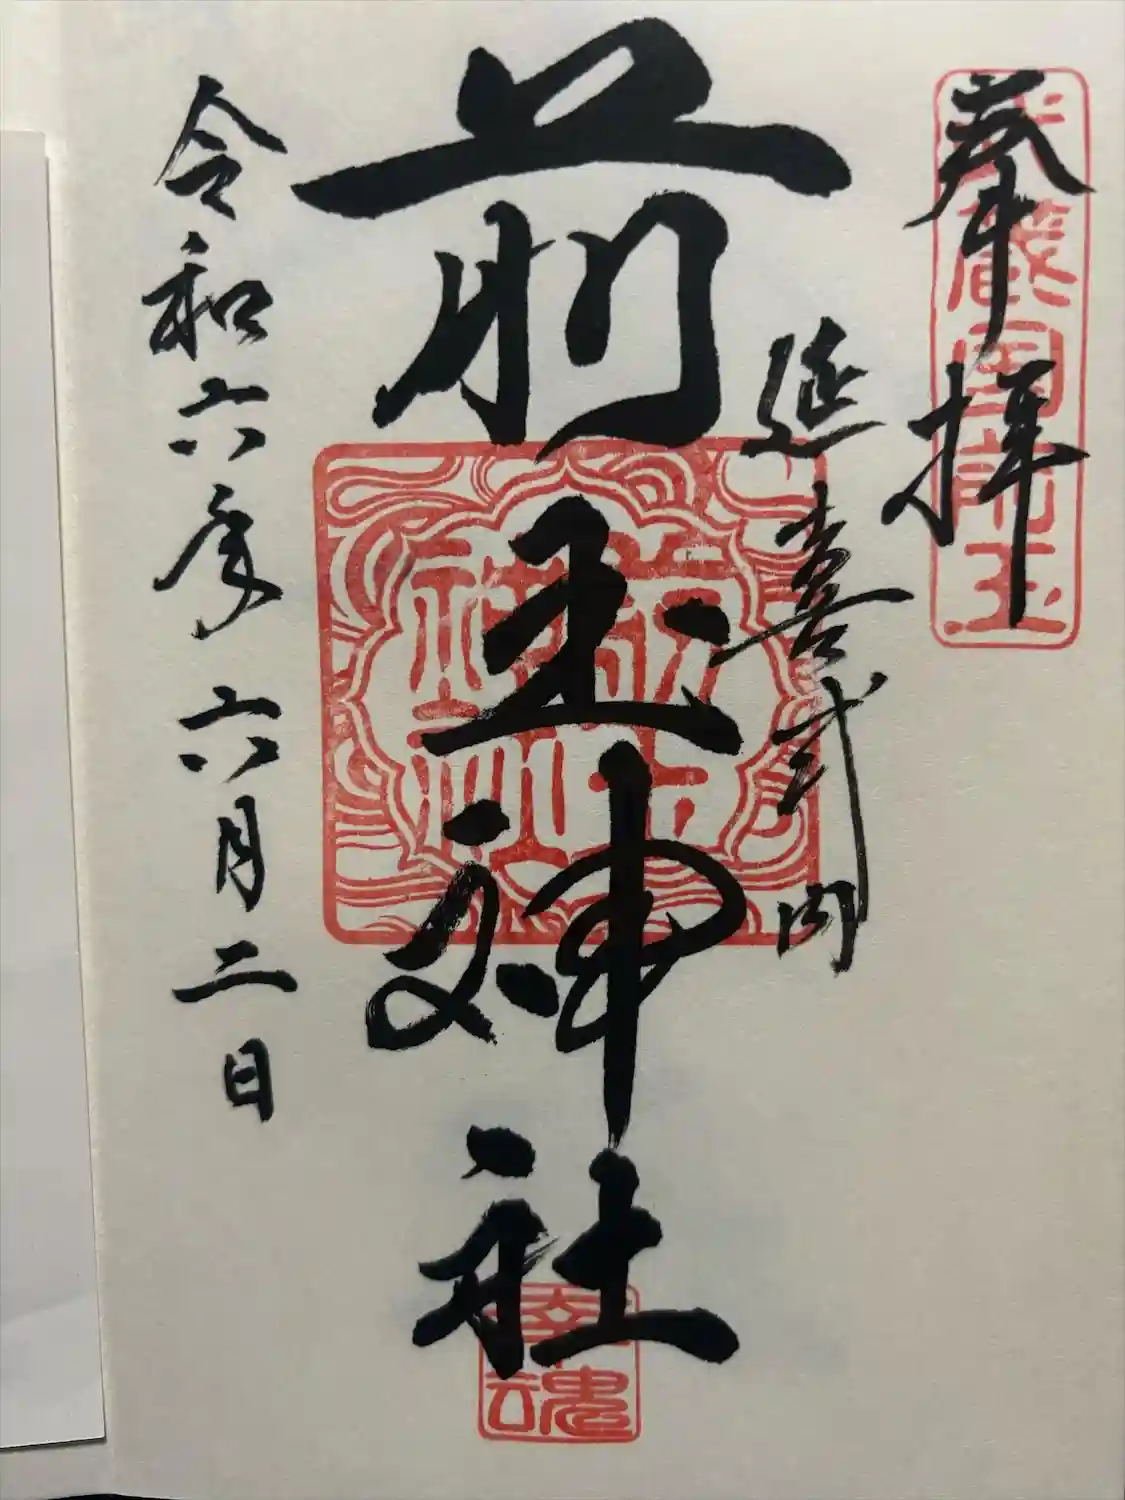 奉拝
武蔵国前玉
延喜式内
前玉神社
幸魂
令和六年六月二日